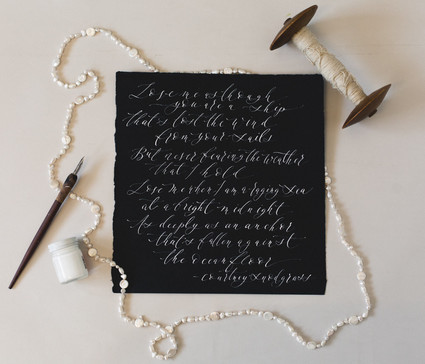 Love me as though
you are a ship
that's lost the wind
from your sails
But never fearing the weather
that I hold
Love me when I am a raging sea
at a bright midnight
As deeply as an anchor
that's fallen against
the ocean floor
- Courtney Snodgrass